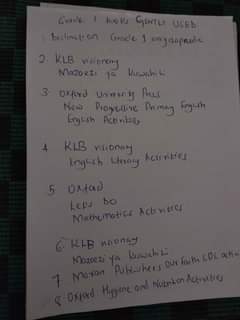 Grade 1 books GENTLY USED
1. Distination Grade 1 encyclopaedia
2 KLB visionary
Mazoezi ya Kiswahili
3 Oxford University Press
New Progressive Primary English
English Activities
4 KLB visionary
English Literacy Activities
5 Oxford
Lets Do
Mathematics Activities
6 KLB visionary
Mazoezi ya Kiswahili
7 Moran Publishers Our Faith CRE
8 Oxford Hygiene and Nutrition Activities